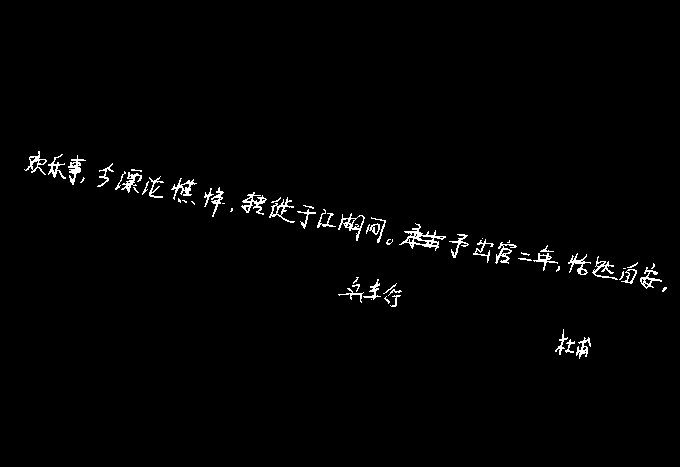 欢乐事,今漂沦憔悴,转徙于江湖间。予出官二年,恬然自安,
兵车行
杜甫